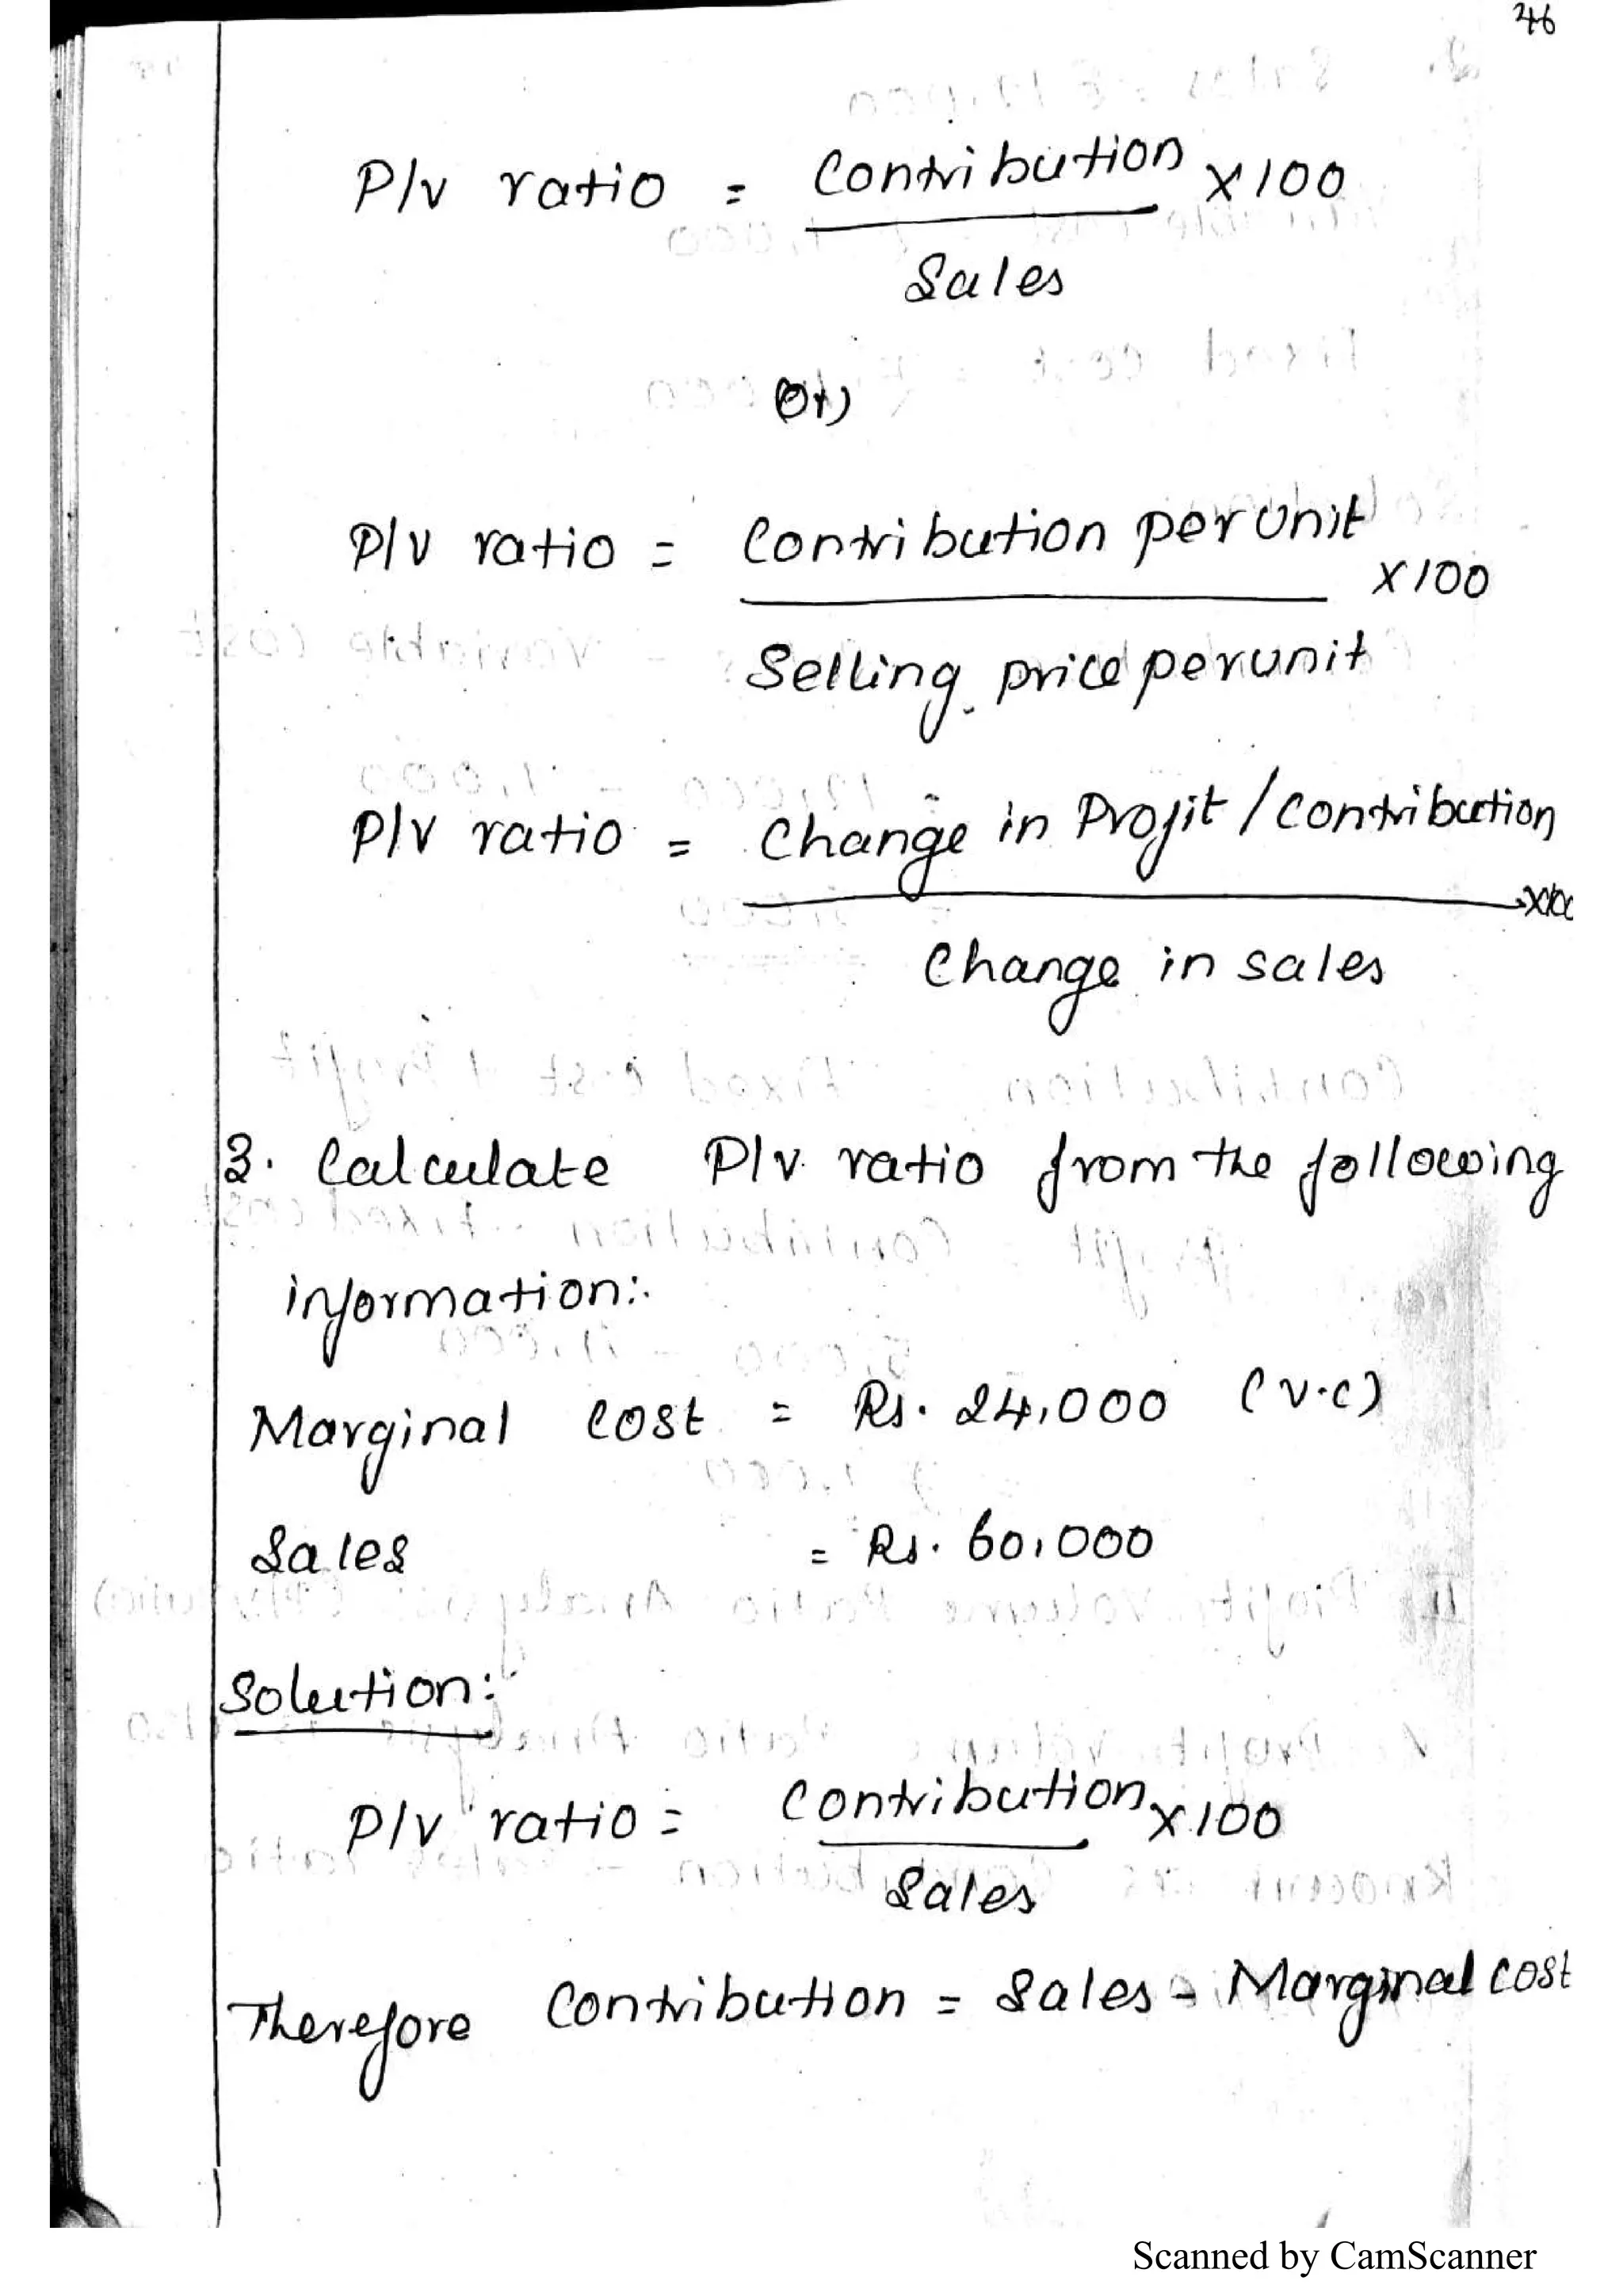 46
P/v ratio = Contribution x100
Sales
(Or)
P/v ratio = Contribution per unit x100
Selling price per unit
P/v ratio = Change in Profit / Contribution
Change in sales
3. Calculate P/v ratio from the following
information:
Marginal cost = Rs. 24,000 (v.c)
Sales = Rs. 60,000
Solution:
P/v ratio = Contribution x100
Sales
Therefore Contribution = Sales - Marginal cost
Scanned by CamScanner